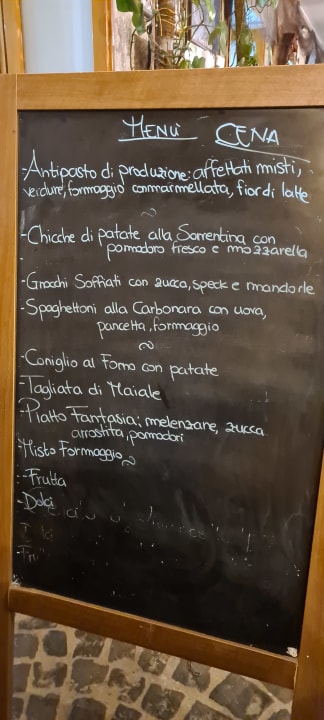 MENÙ CENA
-Antipasto di produzione: affettati misti,
verdure, formaggio con marmellata, fior di latte
~
-Chicche di patate alla Sorrentina con
pomodoro fresco e mozzarella
-Gnocchi Soffiati con zucca, speck e mandorle
-Spaghettoni alla Carbonara con uova,
pancetta, formaggio
~
-Coniglio al Forno con patate
-Tagliata di Maiale
-Piatto Fantasia: melenzane, zucca
arrostita, pomodori
-Misto Formaggio
~
-Frutta
-Dolci